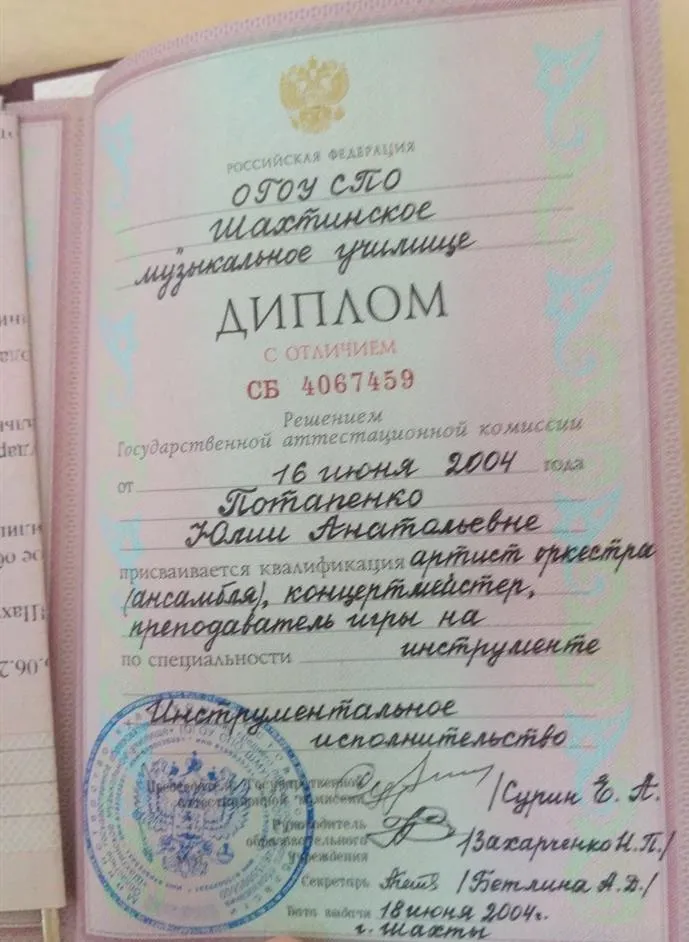 РОССИЙСКАЯ ФЕДЕРАЦИЯ
ОГОУ СПО
Шахтинское
музыкальное училище
ДИПЛОМ
С ОТЛИЧИЕМ
СБ 4067459
Решением
Государственной аттестационной комиссии
от 16 июня 2004 года
Потапенко
Юлии Анатольевне
присваивается квалификация артист оркестра
(ансамбля), концертмейстер,
преподаватель игры на
по специальности инструменте
Инструментальное
исполнительство
Председатель Государственной
аттестационной комиссии /Сурин Е. А.
Руководитель
образовательного /Захарченко Н.П./
учреждения
Секретарь /Бетлина А.Д./
Дата выдачи 18 июня 2004г.
г. Шахты